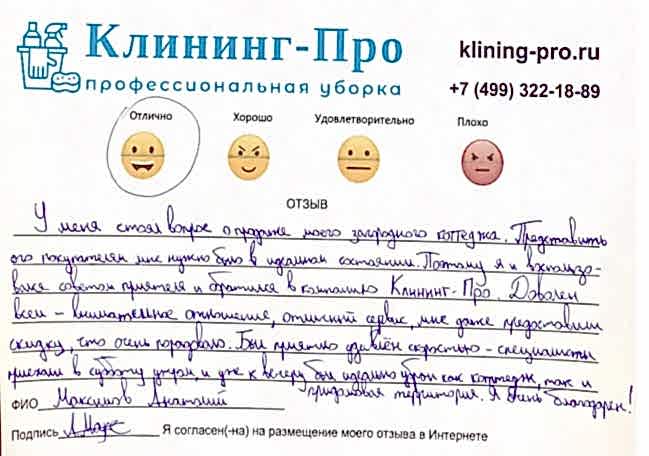 Клининг-Про
klining-pro.ru
профессиональная уборка
+7 (499) 322-18-89
Отлично Хорошо Удовлетворительно Плохо
ОТЗЫВ
У меня стоял вопрос о продаже моего загородного коттеджа. Представить
его покупателям мне нужно было в идеальном состоянии. Поэтому я и воспользо-
вался советом приятеля и обратился в компанию Клининг-Про. Доволен
всем - внимательное отношение, отличный сервис, мне даже предоставили
скидку, что очень порадовало. Был приятно удивлён скоростью - специалисты
приехали в субботу утром, и уже к вечеру был идеально убран как коттедж, так и
придомовая территория. Я очень благодарен!
ФИО Максимов Анатолий
Подпись Я согласен(-на) на размещение моего отзыва в Интернете